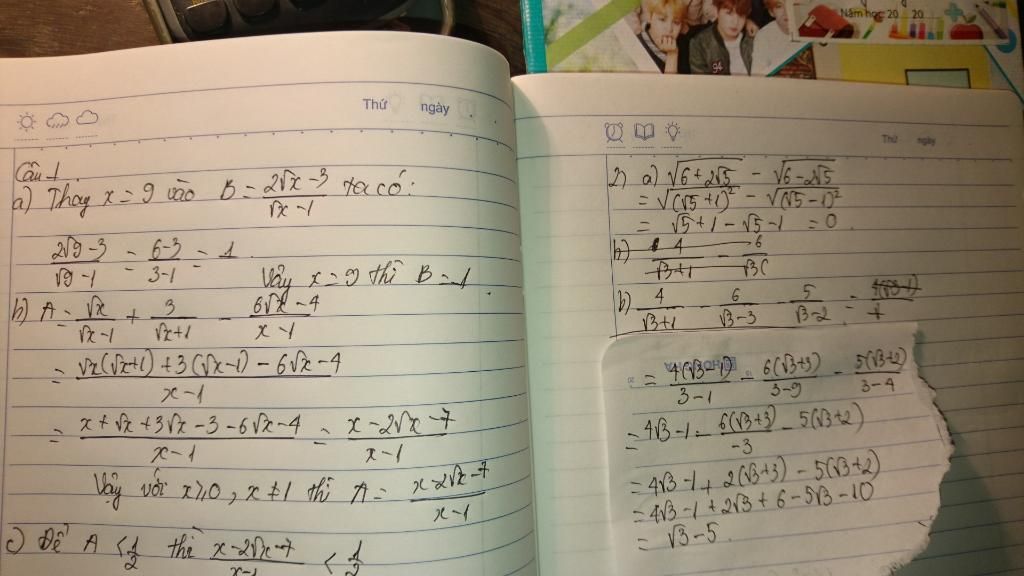 Thứ ngày
Câu 1.
a) Thay x = 9 vào B = (2√x - 3)/(√x - 1) ta có:
(2√9 - 3)/(√9 - 1) = (6 - 3)/(3 - 1) = 1.
Vậy x = 9 thì B = 1.
b) A = √x/(√x - 1) + 3/(√x + 1) - (6√x - 4)/(x - 1)
= (√x(√x + 1) + 3(√x - 1) - 6√x - 4)/(x - 1)
= (x + √x + 3√x - 3 - 6√x - 4)/(x - 1) = (x - 2√x - 7)/(x - 1)
Vậy với x ≥ 0, x ≠ 1 thì A = (x - 2√x - 7)/(x - 1)
c) Để A < 1/2 thì (x - 2√x - 7)/(x - 1) < 1/2
Năm học: 20 20
94
Thứ ngày
2) a) √(6 + 2√5) - √(6 - 2√5)
= √((√5 + 1)²) - √((√5 - 1)²)
= √5 + 1 - √5 - 1 = 0.
b) 4/(√3 + 1) - 6/(√3
b) 4/(√3 + 1) - 6/(√3 - 3) - 5/(√3 - 2) =
= 4(√3 - 1)/(3 - 1) - 6(√3 + 3)/(3 - 9) - 5(√3 + 2)/(3 - 4)
= 4√3 - 1 - 6(√3 + 3)/(-3) - 5(√3 + 2)
= 4√3 - 1 + 2(√3 + 3) - 5(√3 + 2)
= 4√3 - 1 + 2√3 + 6 - 5√3 - 10
= √3 - 5.